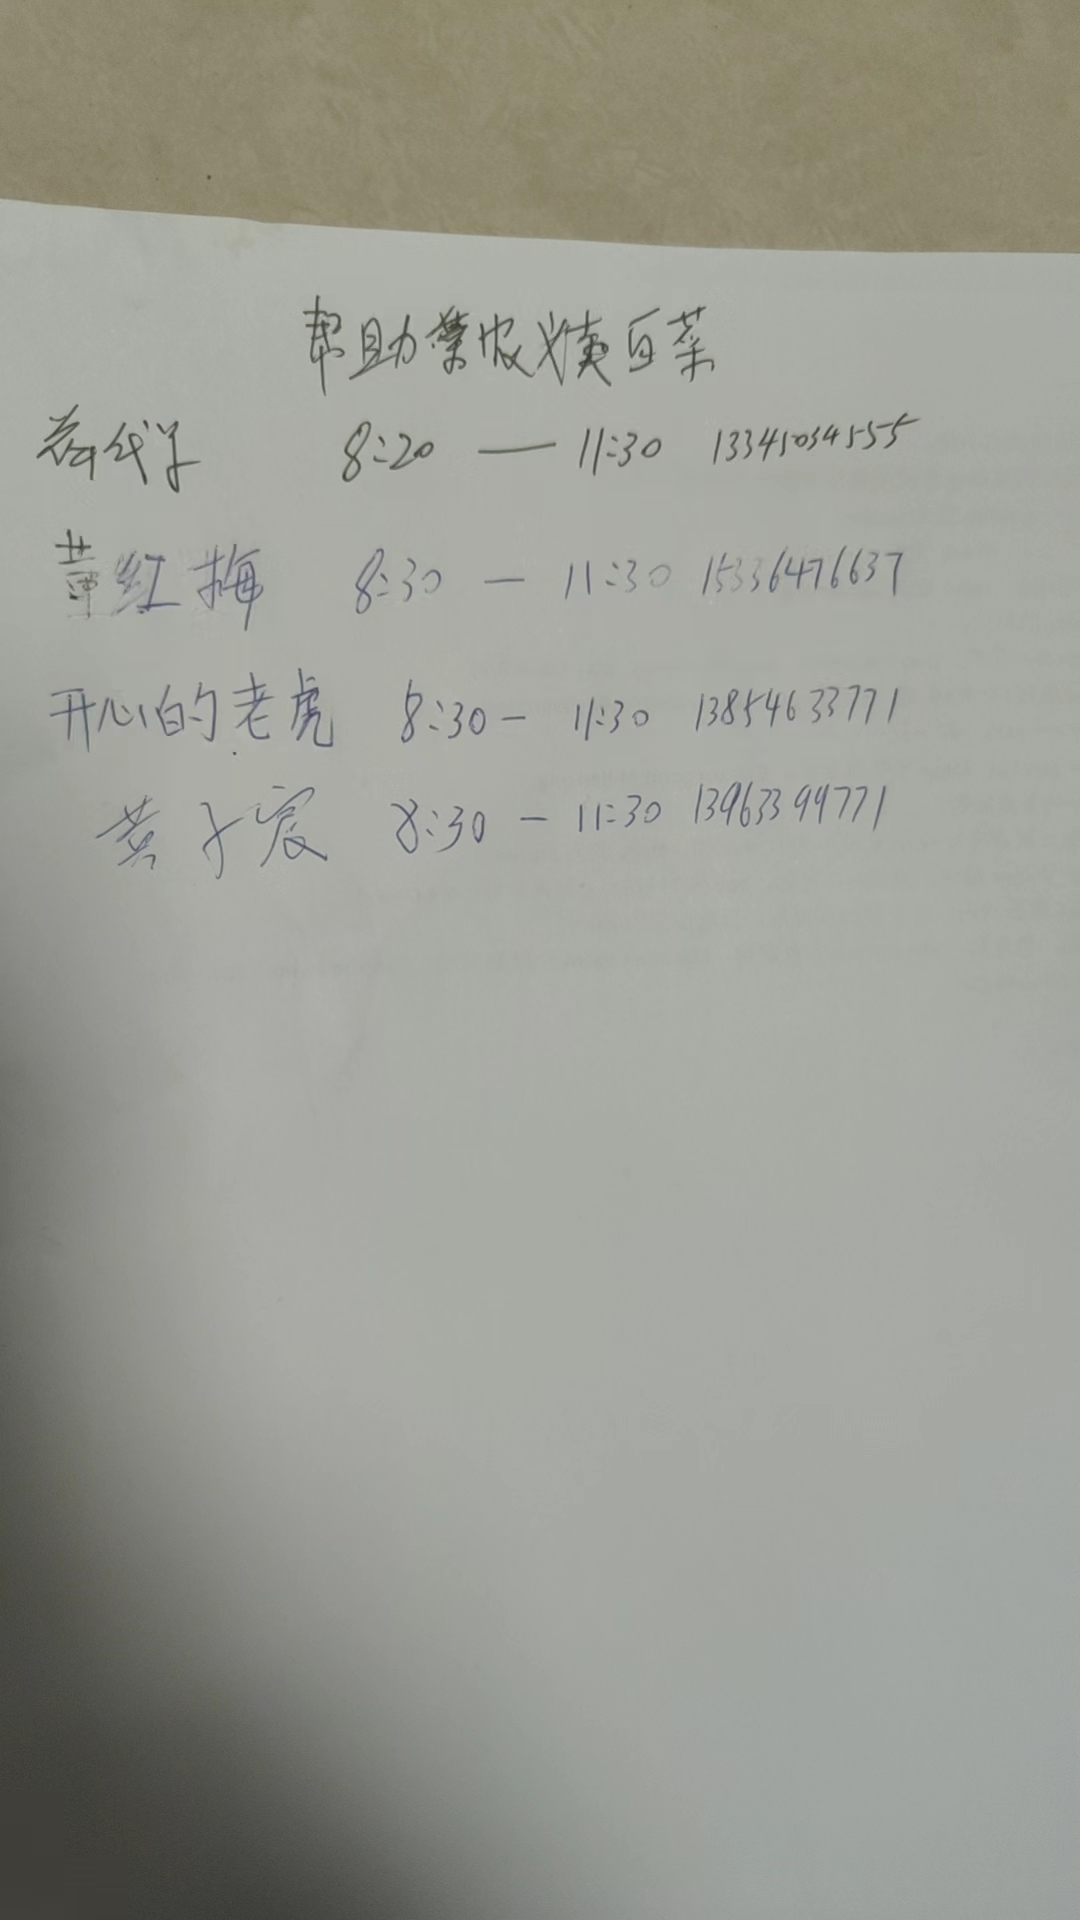 帮助菜农义卖白菜
8:20 — 11:30 13345054555
董红梅 8:30 — 11:30 15336476637
开心的老虎 8:30 - 11:30 13854633771
黄子宸 8:30 - 11:30 13963399771